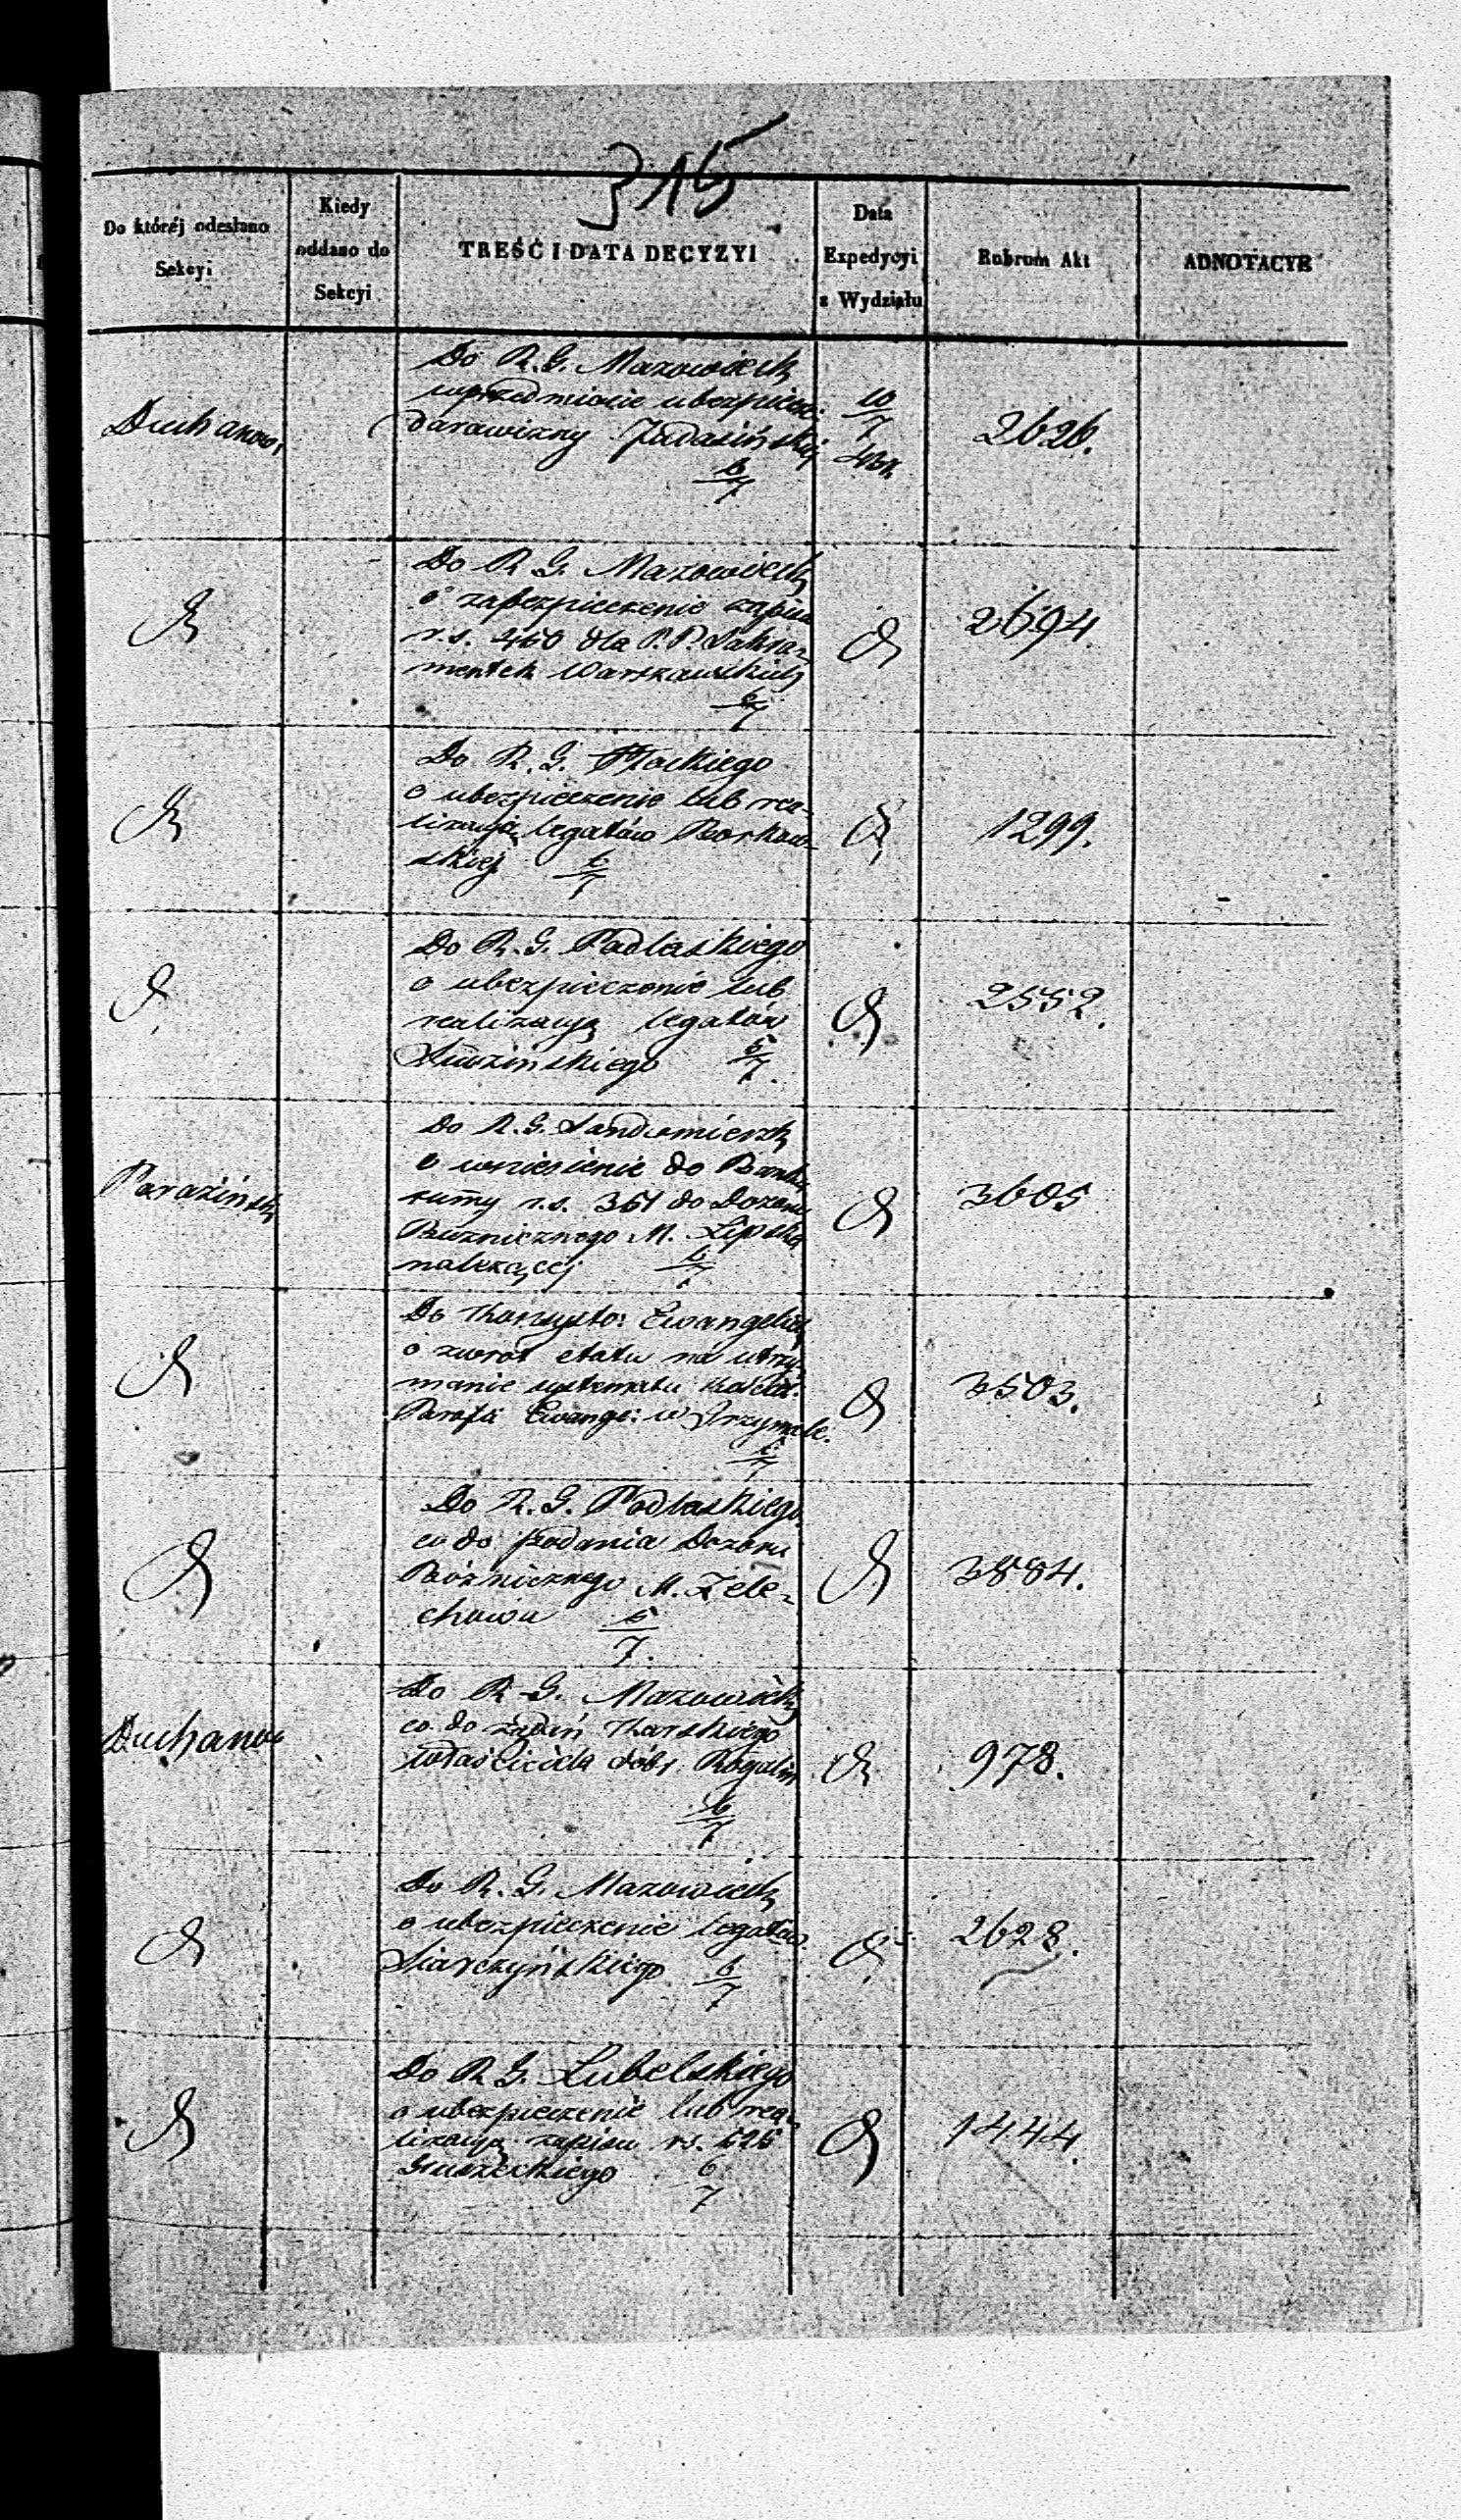 315
Do któréj odesłano
Sekcyi
Kiedy
oddano do
Sekcyi
TREŚĆ I DATA DECYZYI
Data
Expedycyi
z Wydziału
Rubrum Akt
ADNOTACYE
Duchanow
Do R. G. Mazowieck
w przedmiocie ubezpiecz:
darowizny
6/7
10/7
2626.
Do R. G. Mazowieck
o zabezpieczenie zapisu
r.s. 450 dla P. P. Sakra-
mentek Warszawskich
6/7
2694
Do R. G. Płockiego
o ubezpieczenie lub rea-
lizacyą legatów Borkow-
skiej 6/7
1299.
Do R. G. Podlaskiego
o ubezpieczenie lub
realizacyą legatów
6/7
2552.
Paraziński
Do R. G. Sandomiersk
o wniesienie do Banku
summy r.s. 351 do Dozoru
Bużnicznego M. Lipska
należącej 6/7
3605
Do Konsysto: Ewangelic
o zwrot etatu na utrzy-
manie
Parafii Ewange: w
6/7
3503.
Do R. G. Podlaskiego
co do podania Dozoru
Bóżnicznego M. Żele-
chowa 6/7.
3884.
Duchanow
Do R. G. Mazowieck
co do żądań Karskiego
właściciela dóbr Rogolin
6/7
978.
Do R. G. Mazowieck
o ubezpieczenie legatów
Siarczyńskiego 6/7
2628.
Do R. G. Lubelskiego
o ubezpieczenie lub rea-
lizacyą zapisu rs. 525
Głuszeckiego 6/7
1444.